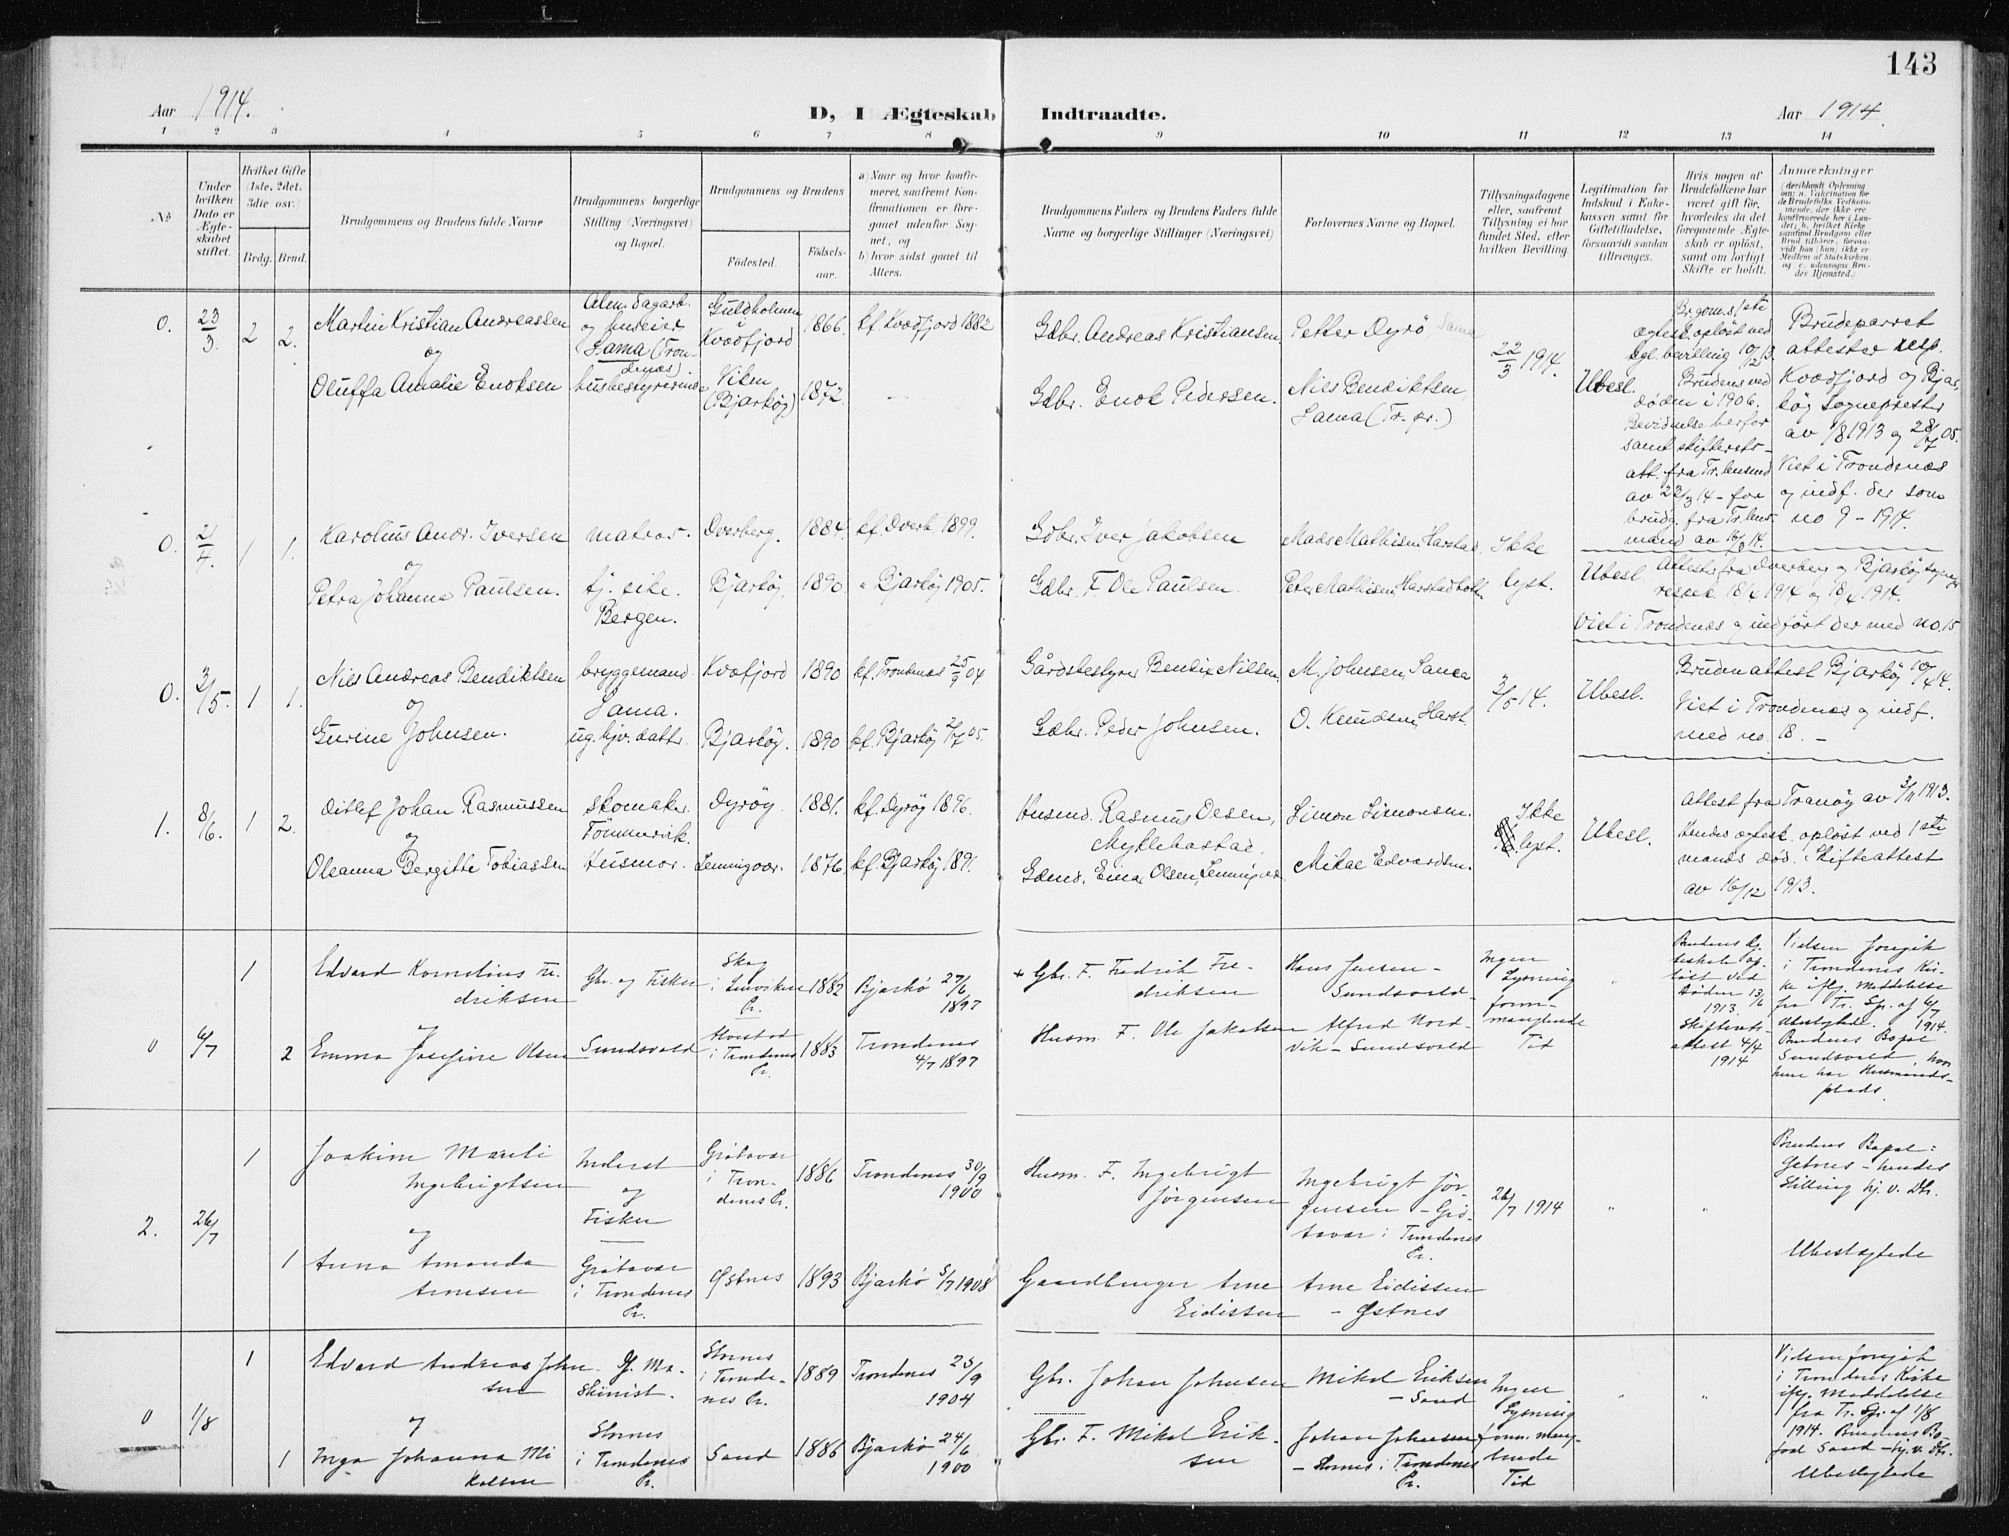 143
Aar 1914.
D, I Ægteskab Indtraadte.
Aar 1914.
1 2 3 4 5 6 7 8 9 10 11 12 13 14
№
Under hvilken Dato er Ægteskabet stiftet.
Hvilket Gifte (1ste, 2det, 3die osv.)
Brdg. Brud.
Brudgommens og Brudens fulde Navne
Brudgommens borgerlige Stilling (Næringsvei) og Bopæl.
Brudgommens og Brudens
Fødested.
Fødsels-aar.
a) Naar og hvor konfirmeret, saafremt Konfirmationen er foregaaet udenfor Sognet, og
b) hvor sidst gaaet til Alters.
Brudgommens Faders og Brudens Faders fulde Navne og borgerlige Stillinger (Næringsvei)
Forlovernes Navne og Bopæl.
Tillysningsdagene eller, saafremt Tillysning ei har fundet Sted, efter hvilken Bevilling.
Legitimation for Indskud i Enkekassen samt for Giftetilladelse, forsaavidt saadan tiltrænges.
Hvis nogen af Brudefolkene har været gift før, hvorledes da det foregaaende Ægteskab er opløst, samt om lovligt Skifte er holdt.
Anmærkninger
0. 23/3 2 2.
Martin Kristian Andreassen
og
Oluffa Amalie Enoksen
Alm. dagarb.
og huseier
Sama (Trondenæs)
husbestyrerinde
Guldholmen
i
Kvædfjord
1866. kf. Kvædfjord 1882
Viken
(Bjarkøy)
1872.
Gdbr. Andreas Kristiansen
Gdbr. Enok Pedersen.
Petter Dyrø Sama
Nils Bendiktsen,
Sama (Tr. pr.)
22/3 1914.
Ubesl.
Brgoms 1ste
ægtesk. opløst ved
kgl. bevilling 10/12 13.
Brudens ved
døden i 1906.
Bevidnelse herfor
samt skifterets-
att. fra Tr. lensmd
av 23/3 14 - for
brudg. fra Tr. lens-
mand av 16/3 14.
Brudeparret
attester resp.
Kvædfjord og Bjar-
køy sogneprester
av 1913 og 28/7 05.
Viet i Trondenæs
og indf. der som
no 9 - 1914.
0. 21/4. 1 1.
Karolius Andr. Iversen
og
Petra Johanna Paulsen.
matros.
tj. pike.
Bergen.
Dverberg. 1884. kf. Dverb. 1899.
Bjarkøy 1890 " Bjarkøy 1905.
Gdbr. Iver Jakobsen
Gdbr. F. Ole Paulsen.
Mads Mathisen, Harstad
Peter Mathisen, Harstad
Ikke
lyst.
Ubesl.
Attester fra Dverberg og Bjarkøy
resp. 18/4 1914 og 18/4 1914.
Viet i Trondenæs og indført der med no. 15
0. 3/5. 1 1.
Nils Andreas Bendiktsen
og
Gurine Johnsen.
bryggemand
Sama.
ug. hjv. datter
Kvæfjord 1890 kf. Trondenæs 25/9 04
Bjarkøy. 1890 kf. Bjarkøy 2/7 05.
Gårdsbestyrer Bendix Nilsen
Gdbr. Peder Johnsen.
M. Johnsen, Sama
O. Knudsen, Harst.
3/5 14.
Ubesl.
Brudens attest Bjarkøy 10/4 14.
Viet i Trondenæs og indf.
med no. 18. -
1. 8/6. 1 2.
Ditlef Johan Rasmussen
og
Oleanna Bergitte Tobiassen
skomaker
Tömmervik.
Husmor.
Dyrøy. 1881. kf. Dyrøy 1896.
Lemmingvær. 1876. kf. Bjarkøy 1891.
Husmd. Rasmus Olsen,
Myklebostad.
Gdmd. Olsen, Lemmingvær.
Simon Simonsen.
Mikal Edvardsen.
Ikke
lyst.
Ubesl.
Attest fra Tranøy av 3/11 1913.
Hendes ægtesk. opløst ved 1ste
mands død. Skifteattest
av 16/12 1913.
0 6/7 1 2
Edvard Kornelius Fre-
driksen
og
Emma Josefine Olsen
Gbr. og Fisker
Sundsvold
Skog
i Lenviken
Pr.
1882
Bjarkø 27/6
1897
i Trondenes
Pr.
1883
Trondenes
4/7 1897
+ Gbr. F. Fredrik Fre-
driksen
Husm. F. Ole Jakobsen
Hans Jensen -
Sundsvold
Alfred Nord-
vik - Sundsvold
Ingen
Lysning
form.
manglende
Tid
Brudens Æg-
teskab op-
løst ved
Døden 13/6
1913.
Skifteat-
attest 4/4
1914
Vielsen foregik
i Trondenes Kir-
ke ifølg. Meddelelse
fra Tr. Spr. af 6/7
1914.
Ubeslegtede.
Brudens Bopæl
Sundsvold, hvor
hun har Husmands-
plads.
2. 26/7 1 1
Joakim Marti
Ingebrigtsen
og
Anna Amanda
Arnesen
Inderst
og
Fisker
Grøtavær
i Trondenes
Pr.
Grøtavær
i Tron-
denes Pr.
1886
Trondenes 30/9
1900
Østnes 1893 Bjarkø 5/7 1908
Husm. F. Ingebrigt
Jørgensen
Gaardbruger Arne
Eidissen
Ingebrigt Jør-
gensen - Grø-
tavær i Trondenes
Pr.
Arne Eidissen
- Østnes
26/7 1914
" "
Brudens Bopæl =
Østnes - hendes
Stilling hj. v. Dtr.
Ubeslegtede
0 1/8 1 1
Edvard Andreas John-
sen
og
Inga Johanna Mi-
kalsen
Gf. Ma-
skinist.
Stornes
i Trondenes
Pr.
Stornes
i Tronde-
nes Pr.
1889
Trondenes 25/9
1904
Sand 1886 Bjarkø 24/6
1900
Gbr. Johan Johnsen
Gbr. F. Mikal Erik-
sen
Mikal Eriksen
- Sand
Johan Johnsen
- Stornes i Trondenes
Pr.
Ingen
Lysning
form. mang-
lende
Tid
" "
Vielsen foregik
i Trondenes Kirke
ifølg. Meddelelse
fra Tr. Spr. af 1/8
1914. Brudens Bo-
pæl Sand - hj. v. Dtr.
Ubeslegtede